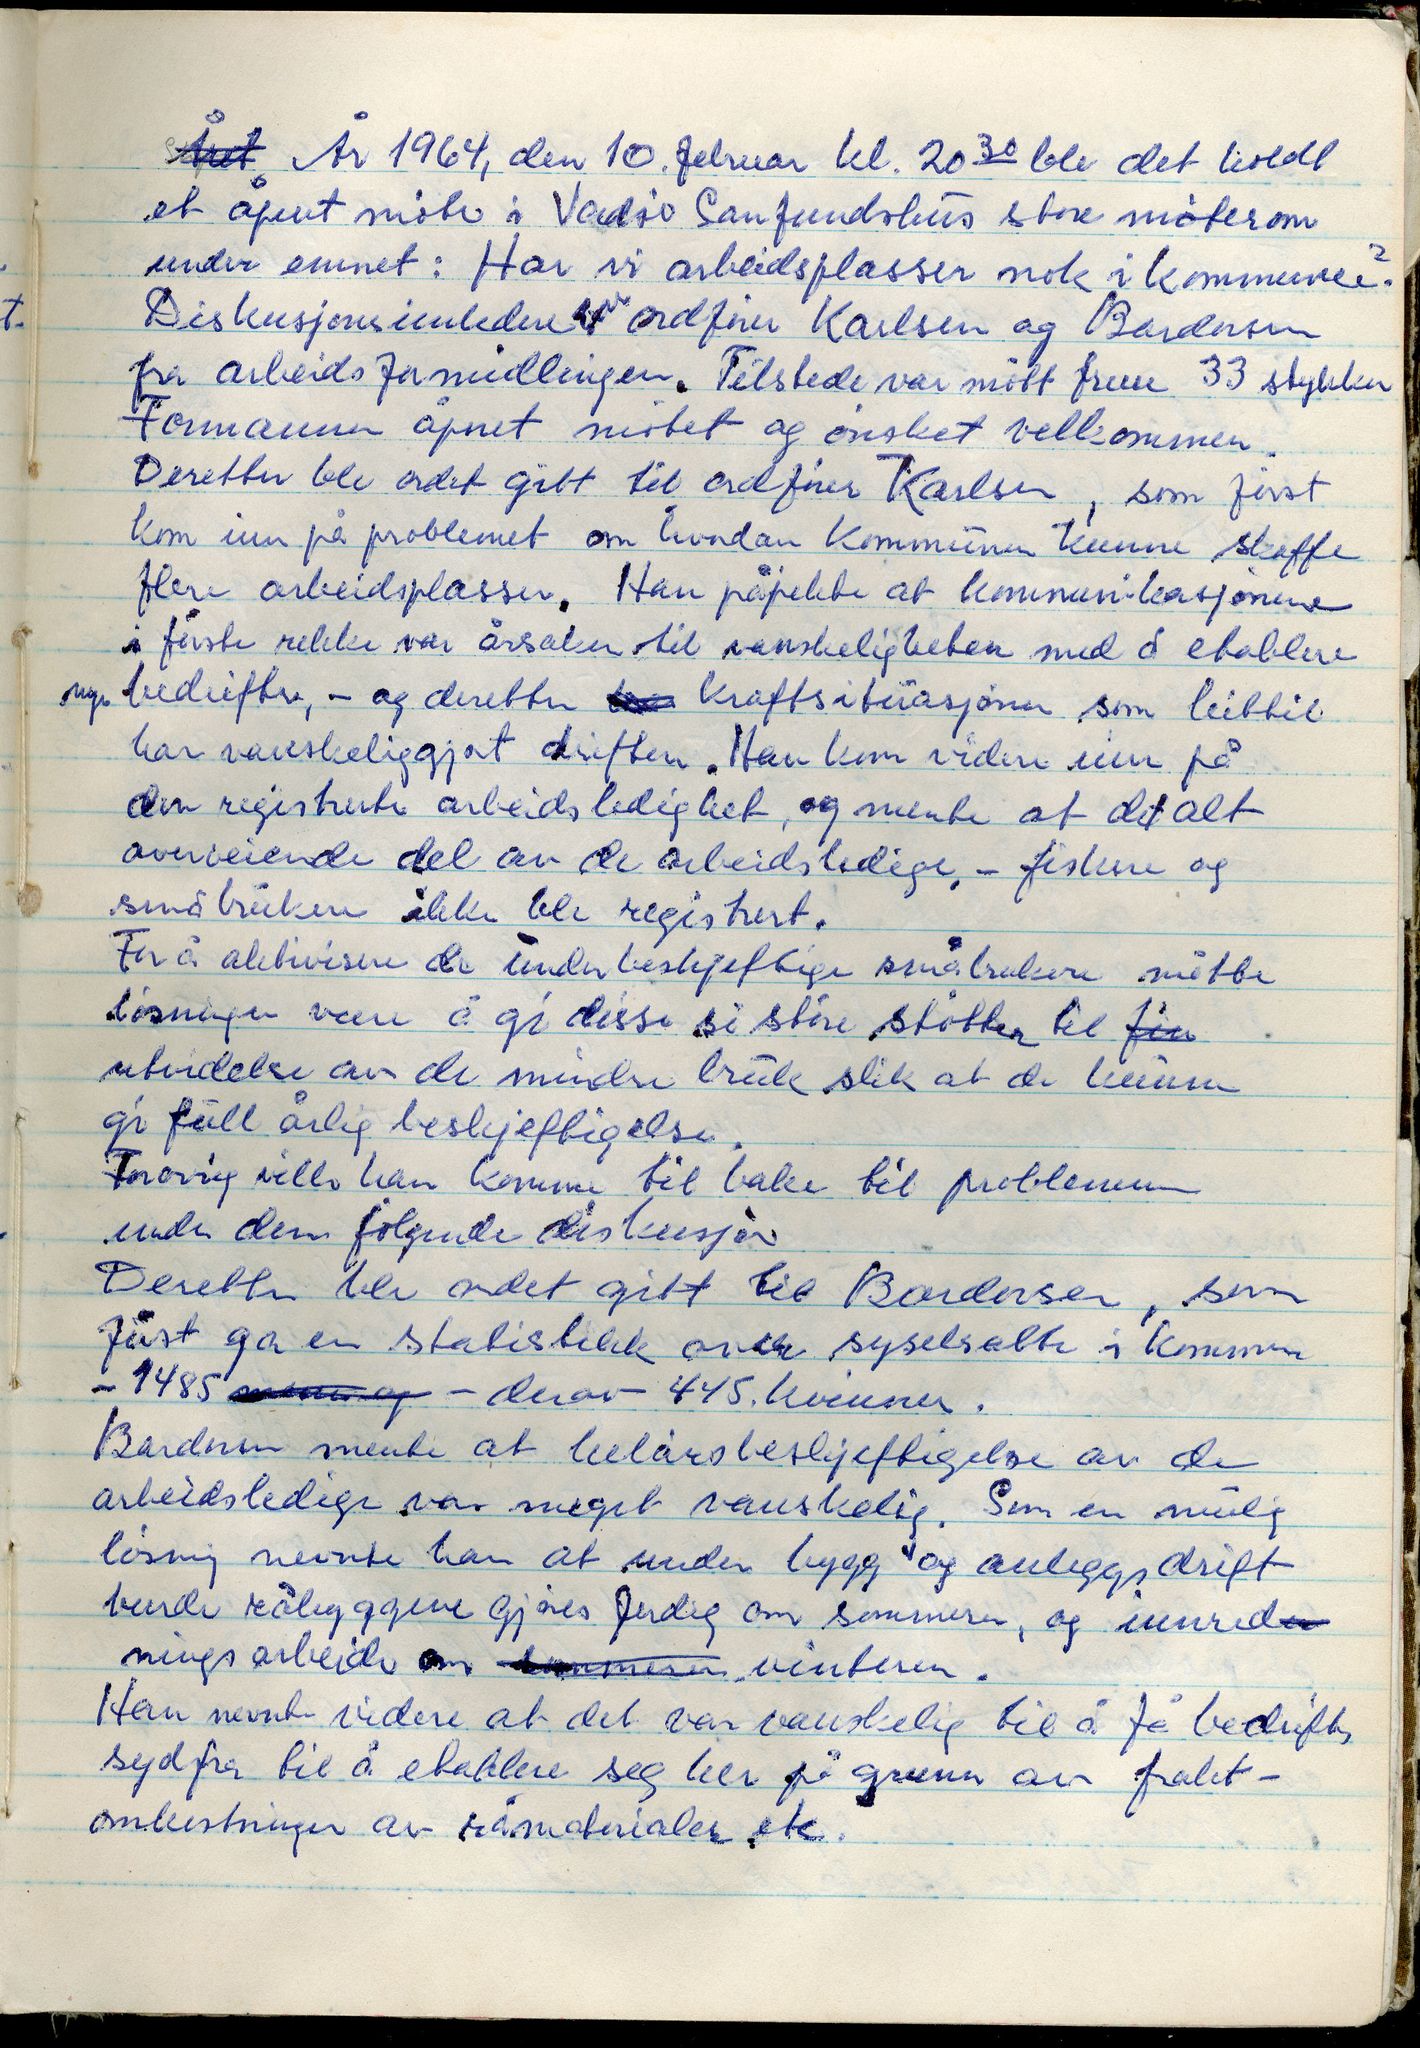 Året År 1964, den 10. februar kl. 20 30 ble det holdt
et åpent möte i Vadsö Samfundshus store möterom
under emnet: Har vi arbeidsplasser nok i kommunen?
Diskusjonsinnledere var ordförer Karlsen og Bardersen
fra arbeidsformidlingen. Tilstede var mött frem 33 stykker
Formannen åpnet mötet og önsket velkommen.
Deretter ble ordet gitt til ordförer Karlsen, som först
kom inn på problemet om hvordan kommunen kunne skaffe
flere arbeidsplasser. Han påpekte at kommunikasjonene
i förste rekke var årsaken til vanskeligheten med å etablere
nye bedrifter, - og deretter kraftsituasjonen som hittil
har vanskeliggjort driften. Han kom videre inn på
den registrerte arbeidsledighet, og mente at det alt
overveiende del av de arbeidsledige, - fiskere og
småbrukere ikke ble registrert.
For å aktivisere de underbeskjeftige småbrukere måtte
lösningen være å gi disse så store stötter til
utvidelse av de mindre bruk slik at de kunne
gi full årlig beskjeftigelse.
Forövrig ville han komme til bake til problemene
under den fölgende diskusjon
Deretter ble ordet gitt til Bardersen, som
först ga en statistikk over syselsatte i kommunen
- 1485 menn og - derav 445. kvinner.
Bardersen mente at helårsbeskjeftigelse av de
arbeidsledige var meget vanskelig. Som en mulig
lösning nevnte han at under bygg og anleggsdrift
burde råbyggene gjöres ferdig om sommeren, og innred
ningsarbeide om sommeren vinteren.
Han nevnte videre at det var vanskelig til å få bedrifter
sydfra til å etablere seg her på grunn av frakt-
omkostninger av råmaterialer etc.